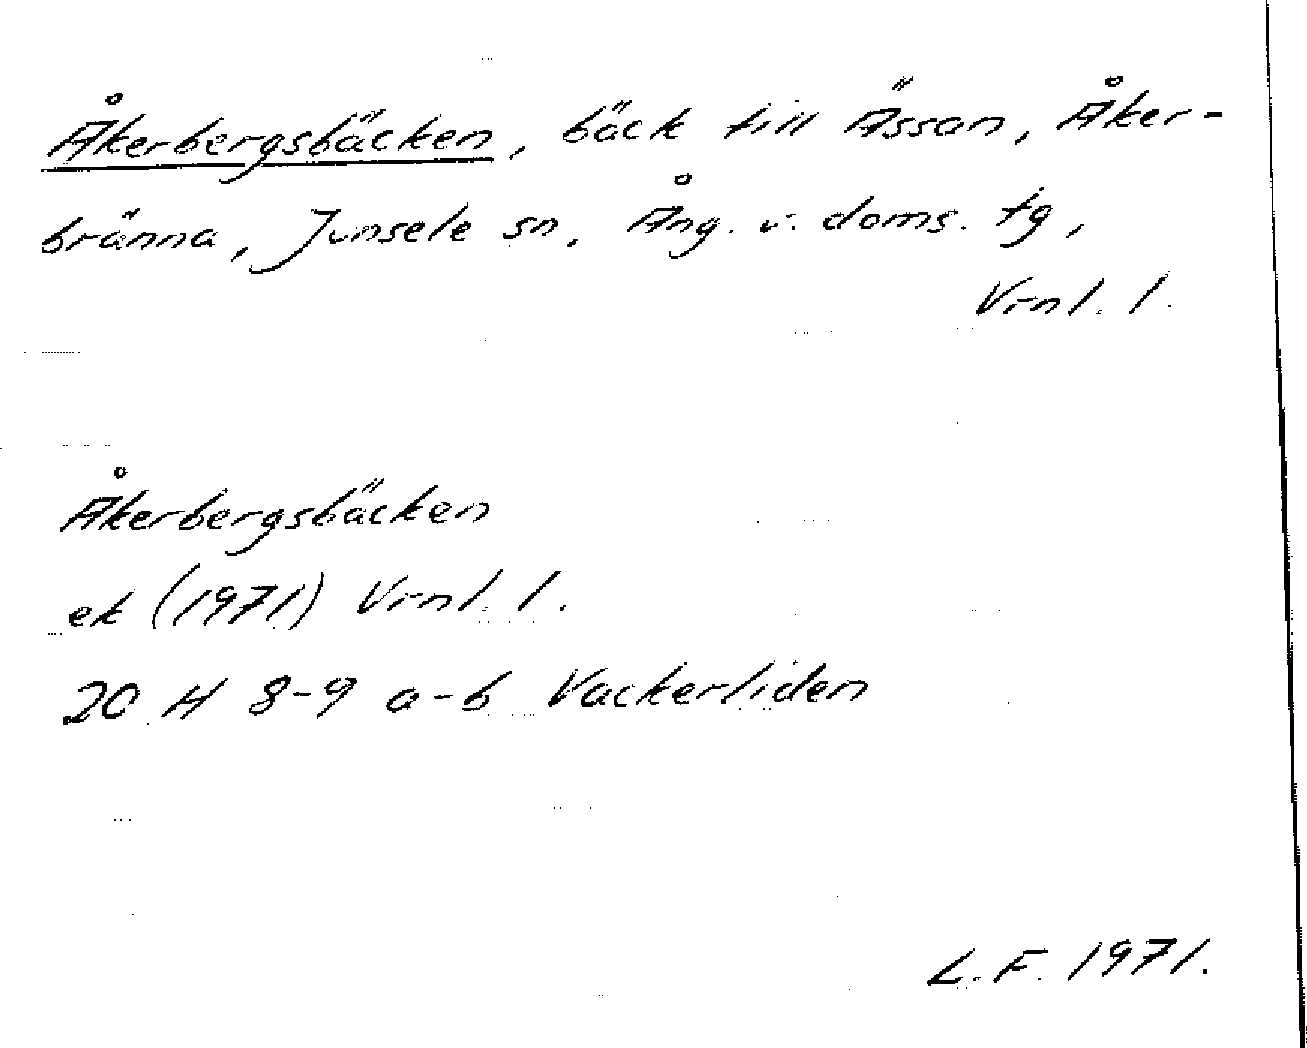 Åkerbergsbäcken, bäck till Ässan, Åker-
bränna, Junsele sn, Ång. v. doms. tg,
Vrnl. l.
Åkerbergsbäcken
ek (1971) Vrnl. l.
20 H 8-9 a-b Vackerliden
L.F. 1971.